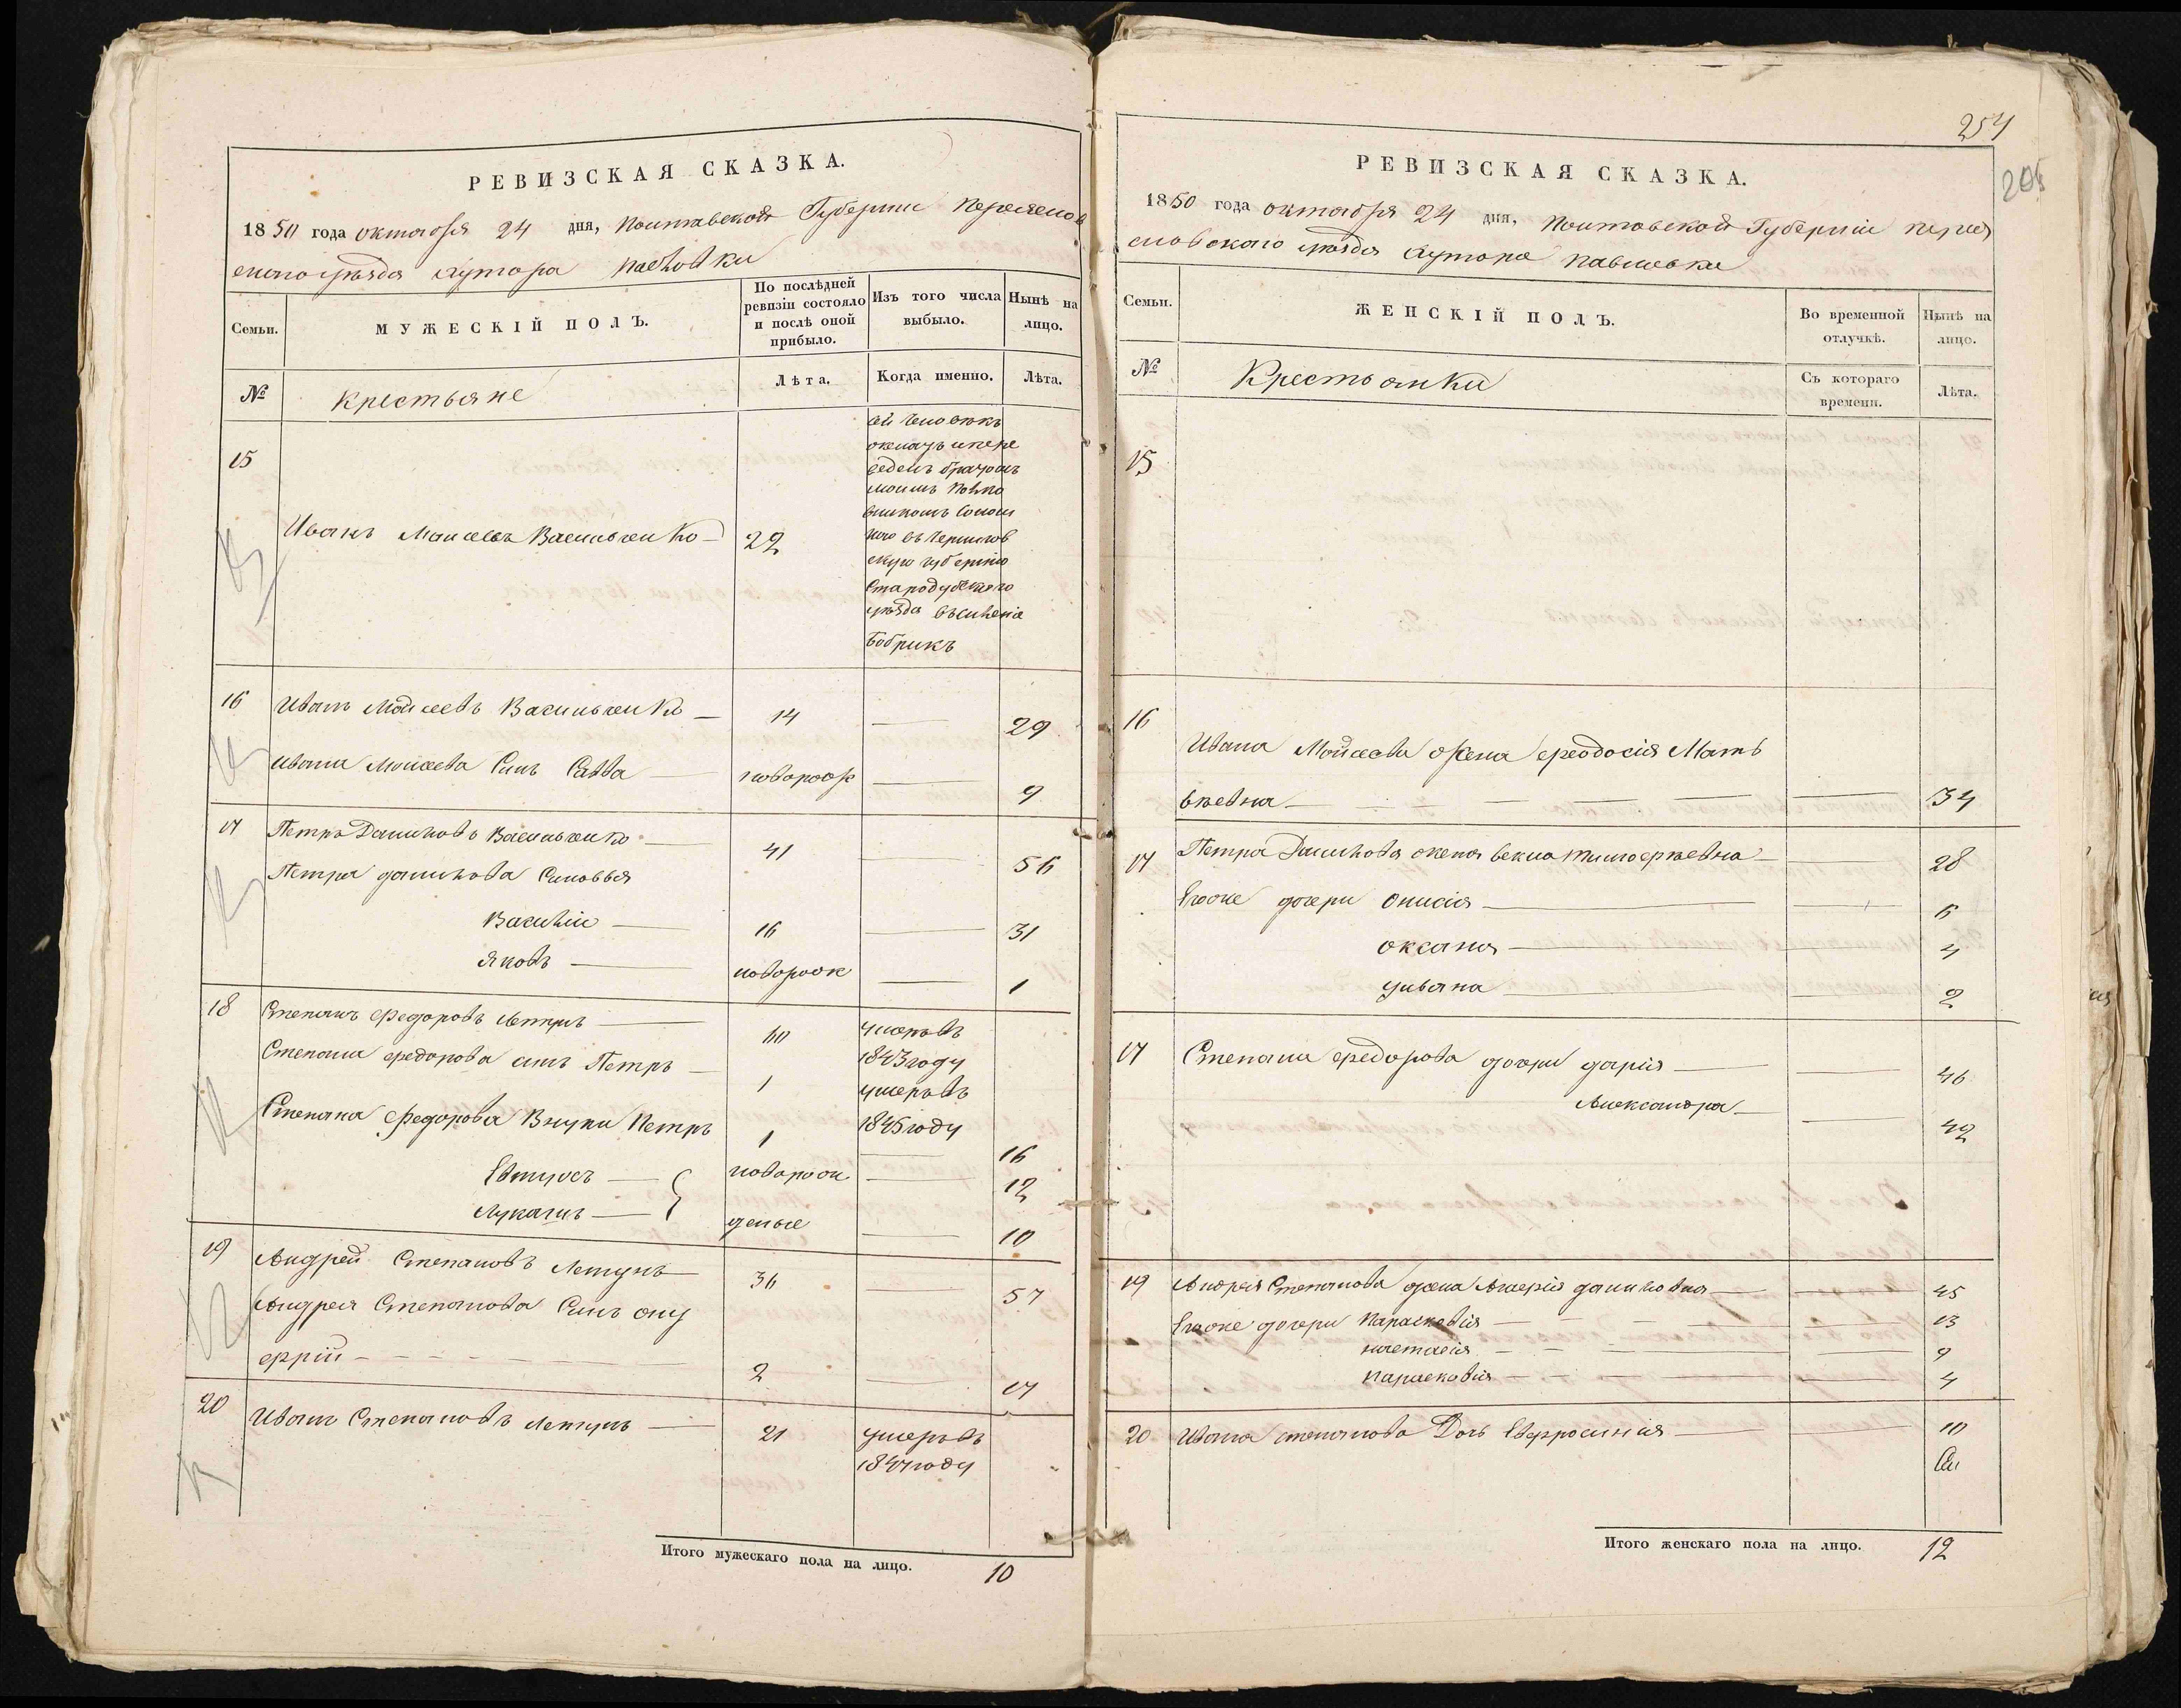 РЕВИЗСКАЯ СКАЗКА.
1850 года октября 24 дня, Полтавской Губернии Переяслов
скаго уѣзда хутора Павловки
Семьи.
МУЖЕСКІЙ ПОЛЪ.
По послѣдней ревизіи состояло и послѣ оной прибыло.
Изъ того числа выбыло.
Нынѣ на лицо.
№
крестьяне
Лѣта.
Когда именно.
Лѣта.
15
человѣкъ
Иванъ Моисеевъ Васильченко 22
въ Чернигов
скую губернію
Стародубскаго
уѣзда въ селеніе
Бобрикъ
16 Иванъ Мойсеевъ Васильченко 14 29
Ивана Моисеева Сынъ Савва новорож 9
17 Петръ Даниловъ Васильченко 41 56
Петра данилова Сыновья
Василій 16 31
Яковъ новорож 1
18 Степанъ Федоровъ Летунъ 60 умеръ въ
1843 году
Степана Федорова сынъ Петръ 1 умеръ въ
1845 году
Степана Федорова Внуки Петръ 1 16
Евтухъ новорож 12
Лукашъ деные 10
19 Андрей Степановъ Летунъ 36 51
Андрея Степанова Сынъ ону
фрій 2 17
20 Иванъ Степановъ Летунъ 21 умеръ въ
1847 году
Итого мужескаго пола на лицо. 10
254
205
РЕВИЗСКАЯ СКАЗКА.
1850 года октября 24 дня, Полтавской Губерніи переяс
ловскаго уѣзда хутора Павловки
Семьи.
ЖЕНСКІЙ ПОЛЪ.
Во временной отлучкѣ.
Нынѣ на лицо.
№
Крестьянки
Съ котораго времени.
Лѣта.
15
16
Ивана Мойсеева жена феодосія Мать
вѣевна 34
17 Петра Данилова жена векла тимофѣевна 28
Егоже дочери Онисія 6
Оксана 4
Ульяна 2
17 Степана Федорова дочери дарія 46
Александра 42
19 Андрея Степанова жена даниловна 45
Егоже дочери Парасковія 13
настасія 9
парасковія 4
20 Ивана степанова Дочь Евфросинія 10
Итого женскаго пола на лицо. 12